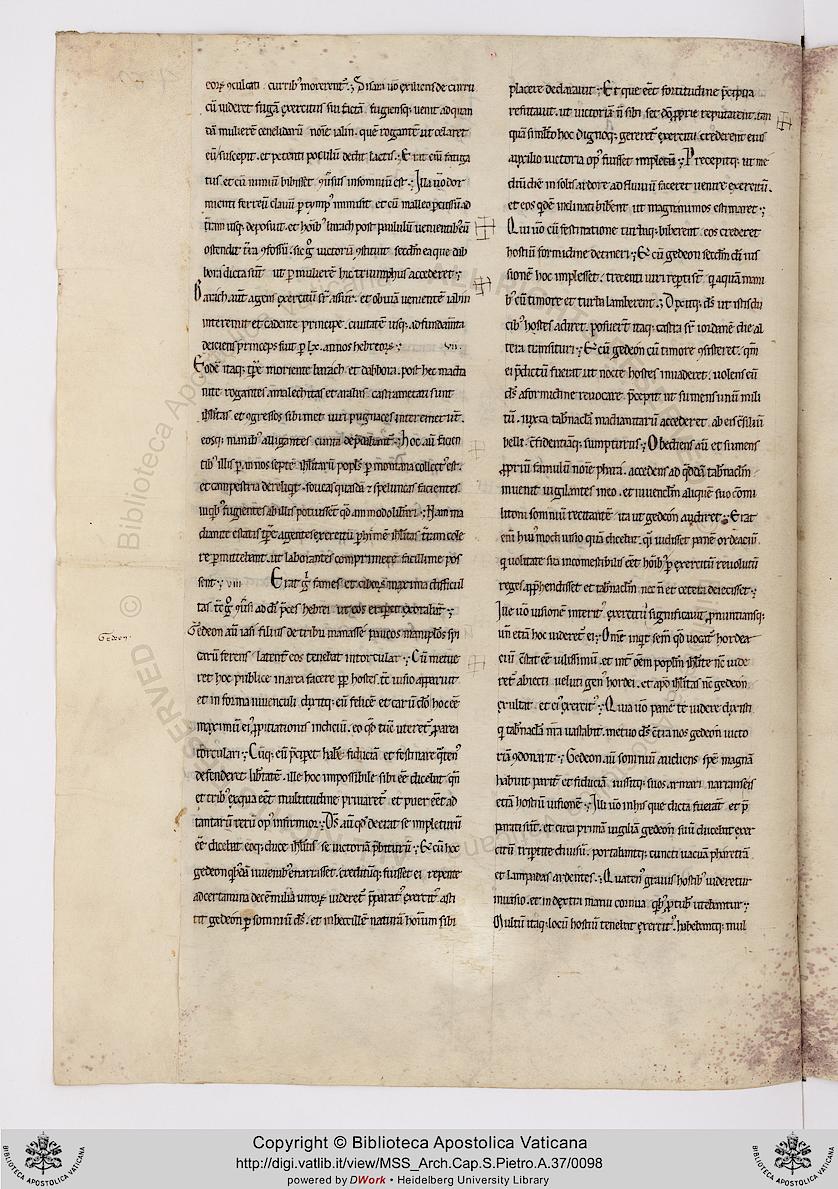 eorum ꝯculcati curribꝰ morerent᷑. Sisara ū exiliens de curru
cū uideret fugā exercitus sui factā. fugiensq; uenit ad quan
dā mulierē cenelidarū noīe ialin. quē rogantē ut celaret
eū suscepit. et petenti poculū dedit lactis. Erat eīm fatiga
tus et cū nimiū bibisset ꝯuersus in somniū est. Illa ū dor
mienti ferreū clauū ꝑ tympꝰ immisit et cū malleo ꝑcussū ad
t̄ram usq; deposuit. et hoībꝰ barach post paululū uenientibꝰ eū
ostendit t̄ra ꝯfossū. sic gͦ uictoriā ꝯstituit scd̄m ea que dab
bora dicta sūt ut ꝑ mulierē hic triumphus accederet.
Barach aūt agens exercitū sr̄ asur. et obuiā uenientē iabin
interemit et cadente principe. ciuitatē usq; ad fundam̄ta
deiciens princeps fuit ꝑ lx. annos hebreorꝝ. vii.
Eodē itaq; tp̄e moriente barach et dabbora. post hec madia
nite rogantes amalechitas et arabas castrametati sunt
isr̄litas et egressos sibimet uiri pugnaces interemerūt.
eosq; manibꝰ alligantes cuncta
tibꝰ illis ꝑ annos septē isr̄litarū popl̄s ꝑ montana collectꝰ est.
et campestria dereliqͥt. foueas quasdā ⁊ speluncas facientes
inqͥbꝰ fugientes ab illis potuissent qͦd ammodo Nam ma
dianite estatis tp̄e agentes exercitū ꝑ hiemē isr̄litas t̄ram cole
re ꝑmittebant. ut laborantes comprimere facillime pos
sent. viii Erat gͦ fames et ciborꝝ maxima difficul
tas ad dm̄ p̄ces hebrei ut eos eriperet exorabāt.
Gedeon aū iasi filius de tribu manasse paucos maniplos spi
carū ferens latent᷑ eos tenebat in torculari. Cū metue
ret hoc publice in area facere ꝓp hostes. tc̄ uisio apparuit
et in forma iuuenculi dixitq; eū felicē et carū dō hoc eē
maximū ei ꝓpitiationis indiciū. eo qͦd tūc uteret᷑ ꝓ area
torculari. Cūq; eū p̄ciperet habē fiduciā et festinare
defenderet lib̄tatē. ille hoc impossibile sibi eē dicebat qm̄
et tribꝰ ex qua eēt multitudine priuaret᷑ et puer eēt ad
tantarū rerū opꝰ infirmior. Ds̄ aū qͦd deerat se impleturū
eē dicebat eoq; duce isr̄litis se uictoriā p̄biturū. Et cū hoc
gedeon qͥbꝰdā iuuenibꝰ enarrasset. creditūq; fuisset ei repente
ad certamina decē milia uirorꝝ uideret᷑ p̄paratꝰ exercitꝰ asti
tit gedeon ꝑ somniū ds̄. et inbecillē naturā hoīum sibi
Gedeon.
placere declarauit. Et que eēt fortitudine p̄cipua
refutauit. ut uictoriā n̄ sibi set dō ꝓprie reputarent. tan
quā simil̄ hoc dignoq; gereret exercitu crederent eius
auxilio uictoria opꝰ fuisset impletū. Precepitq; ut me
diū diē in solis ardore ad fluuiū faceret uenire exercitū.
et eos qͥdē inclinati biberent ut magnanimos estimaret.
Qui ū cū festinatione turbiq; biberent eos crederet
hostiū formidine detineri. Et cū gedeon scd̄m dī uis
sionē hoc implesset. trecenti uiri reperti st̄ qͥ aquā mani
bꝰ cū timore et turba lamberent. Dixitq; ds̄ ut istis du
cibꝰ hostes adiret. posuerūt itaq; castra sr̄ iordanē die al
tera transituri. Et cū gedeon cū timore ꝯsisteret. qm̄
ei p̄dictū fuerat ut nocte hostes inuaderet. uolens eū
ds̄ a formidine reuocare p̄cepit ut sumens unū mili
tū. iuxta tab̄nacl̄a madianitarū accederet. ab eis ꝯsiliū
belli ꝯfidentiāq; sumpturus. Obediens aū et sumens
ꝓpriū famulū noīe phara. accedens ad qͦddā tab̄nacl̄m
inuenit uigilantes in eo. et iuuenclm̄ aliquē suo cōmi
litoni somniū recitantē ita ut gedeon audiret. Erat
eīm huiꝰmodi uisio quā dicebat. qͥ iudisset panē ordeaciū
q̄ uolutate sua incomestibilis eēt hoībꝰ ꝑ exercitū reuolutū
reges app̄hendisset et tab̄nacl̄m nec n̄ et cetera deiecisset.
Ille ū uisionē interitū exercitꝰ significauit ꝓnuntiansq;
un̄ etiā hoc uideret ei. Om̄e inqͥt sem̄ qͦd uocat᷑ hordea
ciū ꝯstat eē uilissimū. et int̄ om̄em popl̄m isr̄lite nc̄ uide
ret᷑ abiecti. ueluti genꝰ hordei. et apd̄ isr̄litas nc̄ gedeon
exultat et eiꝰ exercitꝰ. Qua ū panē te uidere dixisti
qͥ tab̄nacl̄a nr̄a uastabit. metuo ds̄ ꝯtra nos gedeon uicto
riā ꝯdonarit. Gedeon aū somniū audiens spē magnā
habuit parit̄ et fiduciā. iussitq; suos armari narrans eis
etiā hostiū uisionē. Illi ū in his que dicta fuerāt et p̄
parati sūt. et circa primā uigiliā gedeon suū ducebat exer
citū tripartite diuisū. portabantq; cuncti uacuā pharetrā
et lampadas ardentes. Quatenꝰ grauis hostibꝰ uideretur
inuasio. et in dextra manu cornua qͥbꝰ ꝓ tubis utebantur.
Multū itaq; locū hostiū tenebat exercitꝰ. habebantq; mul
Copyright © Biblioteca Apostolica Vaticana
http://digi.vatlib.it/view/MSS_Arch.Cap.S.Pietro.A.37/0098
powered by DWork • Heidelberg University Library
BIBLIOTECA APOSTOLICA VATICANA
BIBLIOTECA APOSTOLICA VATICANA